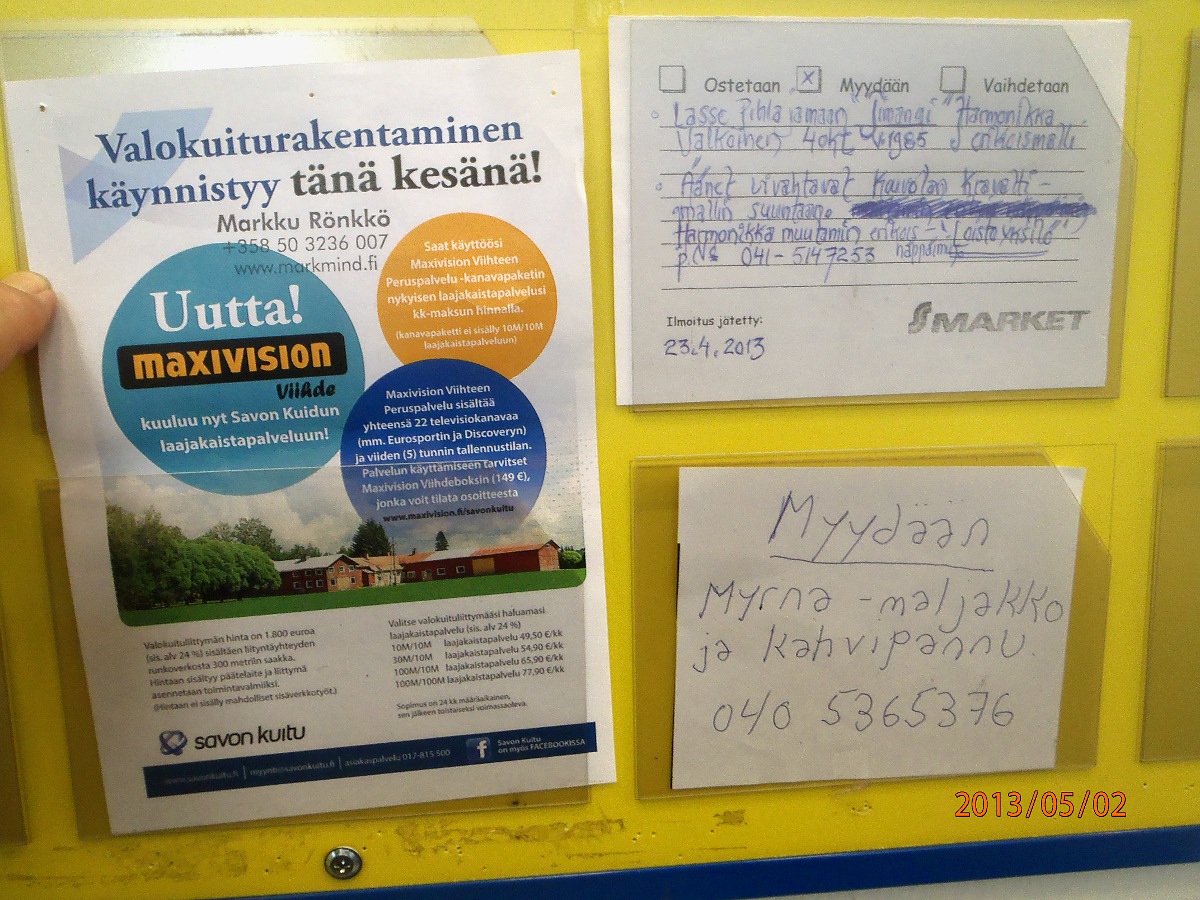 Valokuiturakentaminen
käynnistyy tänä kesänä!
Markku Rönkkö
+358 50 3236 007
www.markmind.fi
Uutta!
maxivision
Viihde
kuuluu nyt Savon Kuidun
laajakaistapalveluun!
Saat käyttöösi
Maxivision Viihteen
Peruspalvelu -kanavapaketin
nykyisen laajakaistapalvelusi
kk-maksun hinnalla.
(kanavapaketti ei sisälly 10M/10M
laajakaistapalveluun)
Maxivision Viihteen
Peruspalvelu sisältää
yhteensä 22 televisiokanavaa
(mm. Eurosportin ja Discoveryn)
ja viiden (5) tunnin tallennustilan.
Palvelun käyttämiseen tarvitset
Maxivision Viihdeboksin (149 €),
jonka voit tilata osoitteesta
www.maxivision.fi/savonkuitu
Valokuituliittymän hinta on 1.800 euroa
(sis. alv 24 %) sisältäen liityntäyhteyden
runkoverkosta 300 metriin saakka.
Hintaan sisältyy päätelaite ja liittymä
asennetaan toimintavalmiiksi.
(Hintaan ei sisälly mahdolliset sisäverkkotyöt.)
Valitse valokuituliittymääsi haluamasi
laajakaistapalvelu (sis. alv 24 %)
10M/10M laajakaistapalvelu 49,50 €/kk
30M/10M laajakaistapalvelu 54,90 €/kk
100M/10M laajakaistapalvelu 65,90 €/kk
100M/100M laajakaistapalvelu 77,90 €/kk
Sopimus on 24 kk määräaikainen,
sen jälkeen toistaiseksi voimassaoleva.
savon kuitu
www.savonkuitu.fi | myynti@savonkuitu.fi | asiakaspalvelu 017-815 500
f Savon Kuitu
on myös FACEBOOKISSA
Ostetaan x Myydään Vaihdetaan
Lasse Pihlajamaan Harmonikka
Valkoinen 4okt v.1985 erikoismalli
Äänet vivahtavat Kouvolan
mallin suuntaan.
Harmonikka muutamin erikois- "Loistoyksilö"
näppäimin
041-5147253
Ilmoitus jätetty:
23.4.2013
S MARKET
Myydään
Myrna -maljakko
ja kahvipannu.
040 5365376
2013/05/02